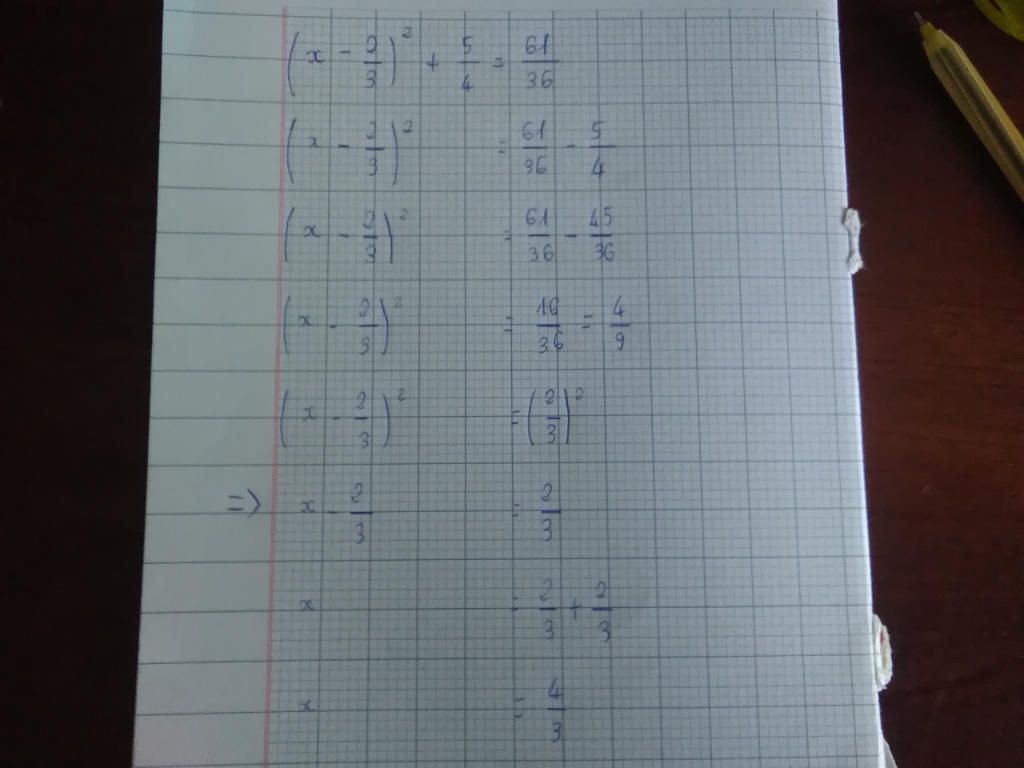 (x - 2/3)² + 5/4 = 61/36
(x - 2/3)² = 61/36 - 5/4
(x - 2/3)² = 61/36 - 45/36
(x - 2/3)² = 16/36 = 4/9
(x - 2/3)² = (2/3)²
=> x - 2/3 = 2/3
x = 2/3 + 2/3
x = 4/3